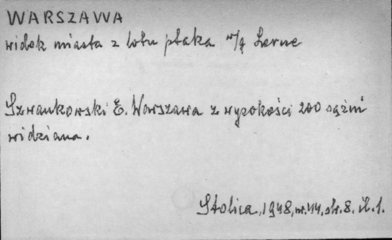 WARSZAWA
widok miasta z lotu ptaka w/g Lerue
Szwankowski E. Warszawa z wysokości 200 sążni
widziana.
Stolica, 1948, nr. 44, str. 8, il. 1.